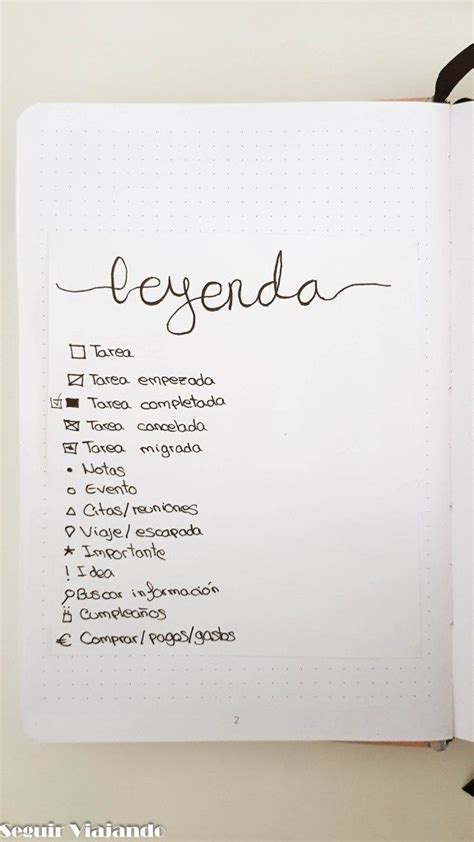 leyenda
Tarea
Tarea empezada
Tarea completada
Tarea cancelada
Tarea migrada
Notas
Evento
Citas/reuniones
Viaje/escapada
* Importante
! Idea
Buscar información
Cumpleaños
€ Comprar/pagos/gastos
2
Seguir Viajando